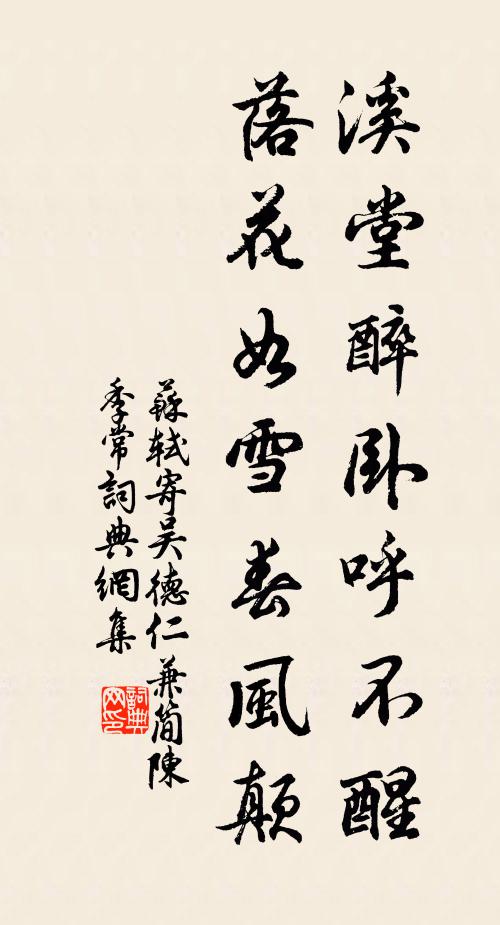 溪堂醉卧呼不醒
落花如雪春風顛
蘇軾寄吴德仁兼簡陳
季常詞典網集
詞典
网印